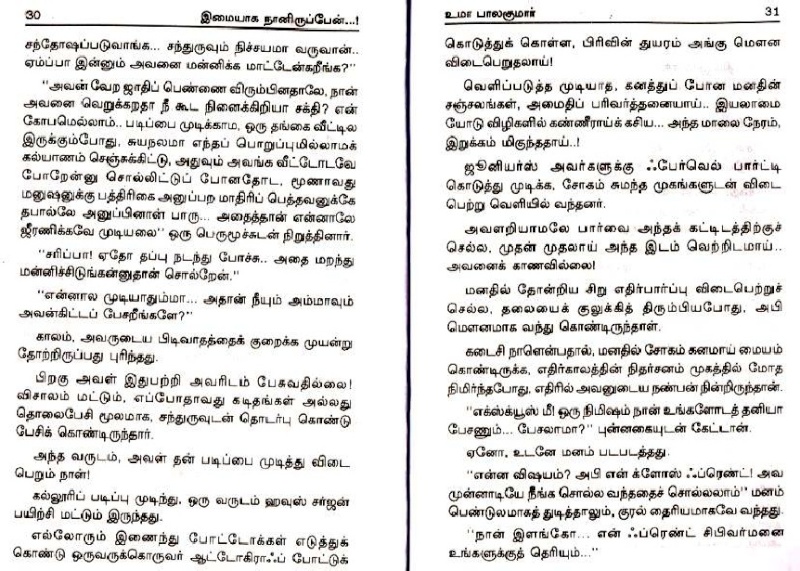 30
இமையாக நானிருப்பேன்...!
சந்தோஷப்படுவாங்க... சந்துருவும் நிச்சயமா வருவான்..
ஏம்ப்பா இன்னும் அவனை மன்னிக்க மாட்டேன்கறீங்க?"
"அவன் வேற ஜாதிப் பெண்ணை விரும்பினதாலே, நான்
அவனை வெறுக்கறதா நீ கூட நினைக்கிறியா சக்தி? என்
கோபமெல்லாம்.. படிப்பை முடிக்காம, ஒரு தங்கை வீட்டில
இருக்கும்போது, சுயநலமா எந்தப் பொறுப்புமில்லாமக்
கல்யாணம் செஞ்சுக்கிட்டு, அதுவும் அவங்க வீட்டோடவே
போறேன்னு சொல்லிட்டுப் போனதோட, மூணாவது
மனுஷனுக்கு பத்திரிகை அனுப்பற மாதிரிப் பெத்தவனுக்கே
தபால்லே அனுப்பினாள் பாரு... அதைத்தான் என்னாலே
ஜீரணிக்கவே முடியலை" ஒரு பெருமூச்சுடன் நிறுத்தினார்.
"சரிப்பா! ஏதோ தப்பு நடந்து போச்சு.. அதை மறந்து
மன்னிச்சிடுங்கன்னுதான் சொல்றேன்."
"என்னால முடியாதும்மா... அதான் நீயும் அம்மாவும்
அவன்கிட்டப் பேசறீங்களே?"
காலம், அவருடைய பிடிவாதத்தைக் குறைக்க முயன்று
தோற்றிருப்பது புரிந்தது.
பிறகு அவள் இதுபற்றி அவரிடம் பேசுவதில்லை!
விசாலம் மட்டும், எப்போதாவது கடிதங்கள் அல்லது
தொலைபேசி மூலமாக, சந்துருவுடன் தொடர்பு கொண்டு
பேசிக் கொண்டிருந்தார்.
அந்த வருடம், அவள் தன் படிப்பை முடித்து விடை
பெறும் நாள்!
கல்லூரிப் படிப்பு முடிந்து, ஒரு வருடம் ஹவுஸ் சர்ஜன்
பயிற்சி மட்டும் இருந்தது.
எல்லோரும் இணைந்து போட்டோக்கள் எடுத்துக்
கொண்டு ஒருவருக்கொருவர் ஆட்டோகிராஃப் போட்டுக்
உமா பாலகுமார்
31
கொடுத்துக் கொள்ள, பிரிவின் துயரம் அங்கு மௌன
விடைபெறுதலாய்!
வெளிப்படுத்த முடியாத, கனத்துப் போன மனதின்
சஞ்சலங்கள், அமைதிப் பரிவர்த்தனையாய்.. இயலாமை
யோடு விழிகளில் கண்ணீராய்க் கசிய... அந்த மாலை நேரம்,
இறுக்கம் மிகுந்ததாய்..!
ஜூனியர்ஸ் அவர்களுக்கு ஃபேர்வெல் பார்ட்டி
கொடுத்து முடிக்க, சோகம் சுமந்த முகங்களுடன் விடை
பெற்று வெளியில் வந்தனர்.
அவளறியாமலே பார்வை அந்தக் கட்டிடத்திற்குச்
செல்ல, முதன் முதலாய் அந்த இடம் வெற்றிடமாய்..
அவனைக் காணவில்லை!
மனதில் தோன்றிய சிறு எதிர்பார்ப்பு விடைபெற்றுச்
செல்ல, தலையைக் குலுக்கித் திரும்பியபோது, அபி
மௌனமாக வந்து கொண்டிருந்தாள்.
கடைசி நாளென்பதால், மனதில் சோகம் கனமாய் மையம்
கொண்டிருக்க, எதிர்காலத்தின் நிதர்சனம் முகத்தில் மோத
நிமிர்ந்தபோது, எதிரில் அவனுடைய நண்பன் நின்றிருந்தான்.
"எக்ஸ்க்யூஸ் மீ! ஒரு நிமிஷம் நான் உங்களோடத் தனியா
பேசணும்... பேசலாமா?" புன்னகையுடன் கேட்டான்.
ஏனோ, உடனே மனம் படபடத்தது.
"என்ன விஷயம்? அபி என் க்ளோஸ் ஃப்ரெண்ட்! அவ
முன்னாடியே நீங்க சொல்ல வந்ததைச் சொல்லலாம்" மனம்
பெண்டுலமாகத் துடித்தாலும், குரல் தைரியமாகவே வந்தது.
"நான் இளங்கோ... என் ஃப்ரெண்ட் சிபிவர்மனை
உங்களுக்குத் தெரியும்..."